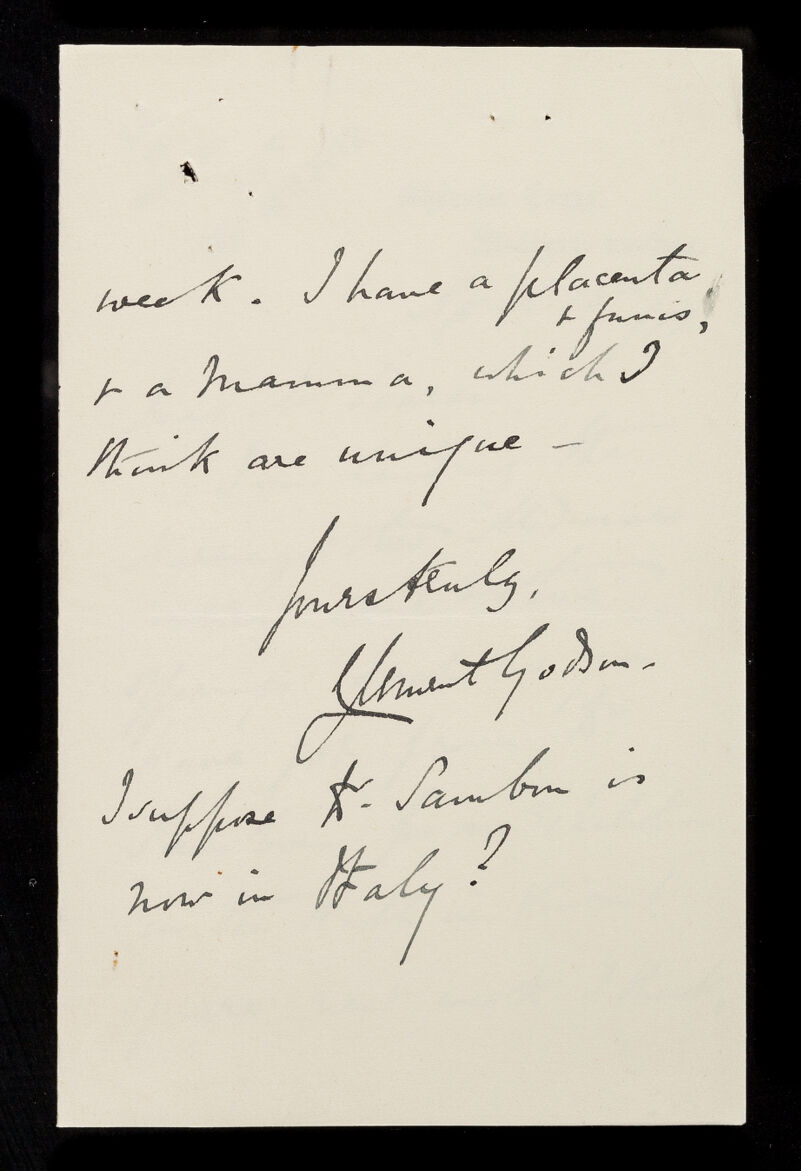 week. I have a placenta
+ funis,
+ a Mamma, which I
think are unique –
Yours truly,
Clement Godson –
I suppose Dr. Sambon is
now in Italy?